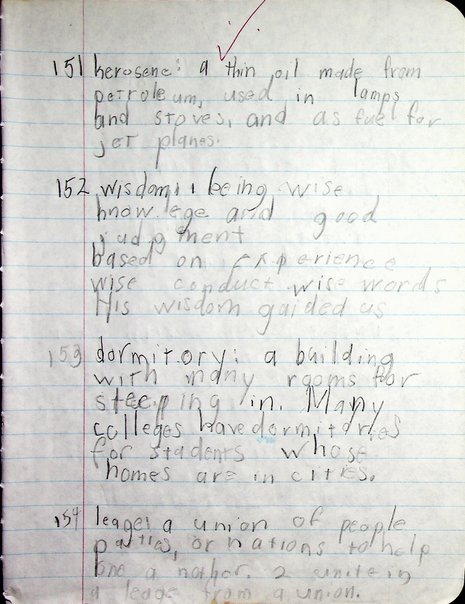 151 kerosene: a thin oil made from
petroleum, used in lamps
and stoves, and as fuel for
jet planes.
152 wisdom: being wise
knowlege and good
judgment
based on experience
wise conduct wise words
His wisdom guided us
153 dormitory: a building
with many rooms for
sleeping in. Many
colleges have dormitories
for students whose
homes are in cities.
154 leage: a union of people
parties, or nations to help
one a nother. 2 unite in
a leage from a union.